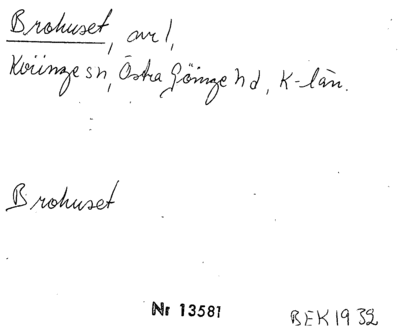 Brohuset, avl,
Kviinge sn, Östra Göinge hd, K-län.
Brohuset
Nr 13581
BEK 1932